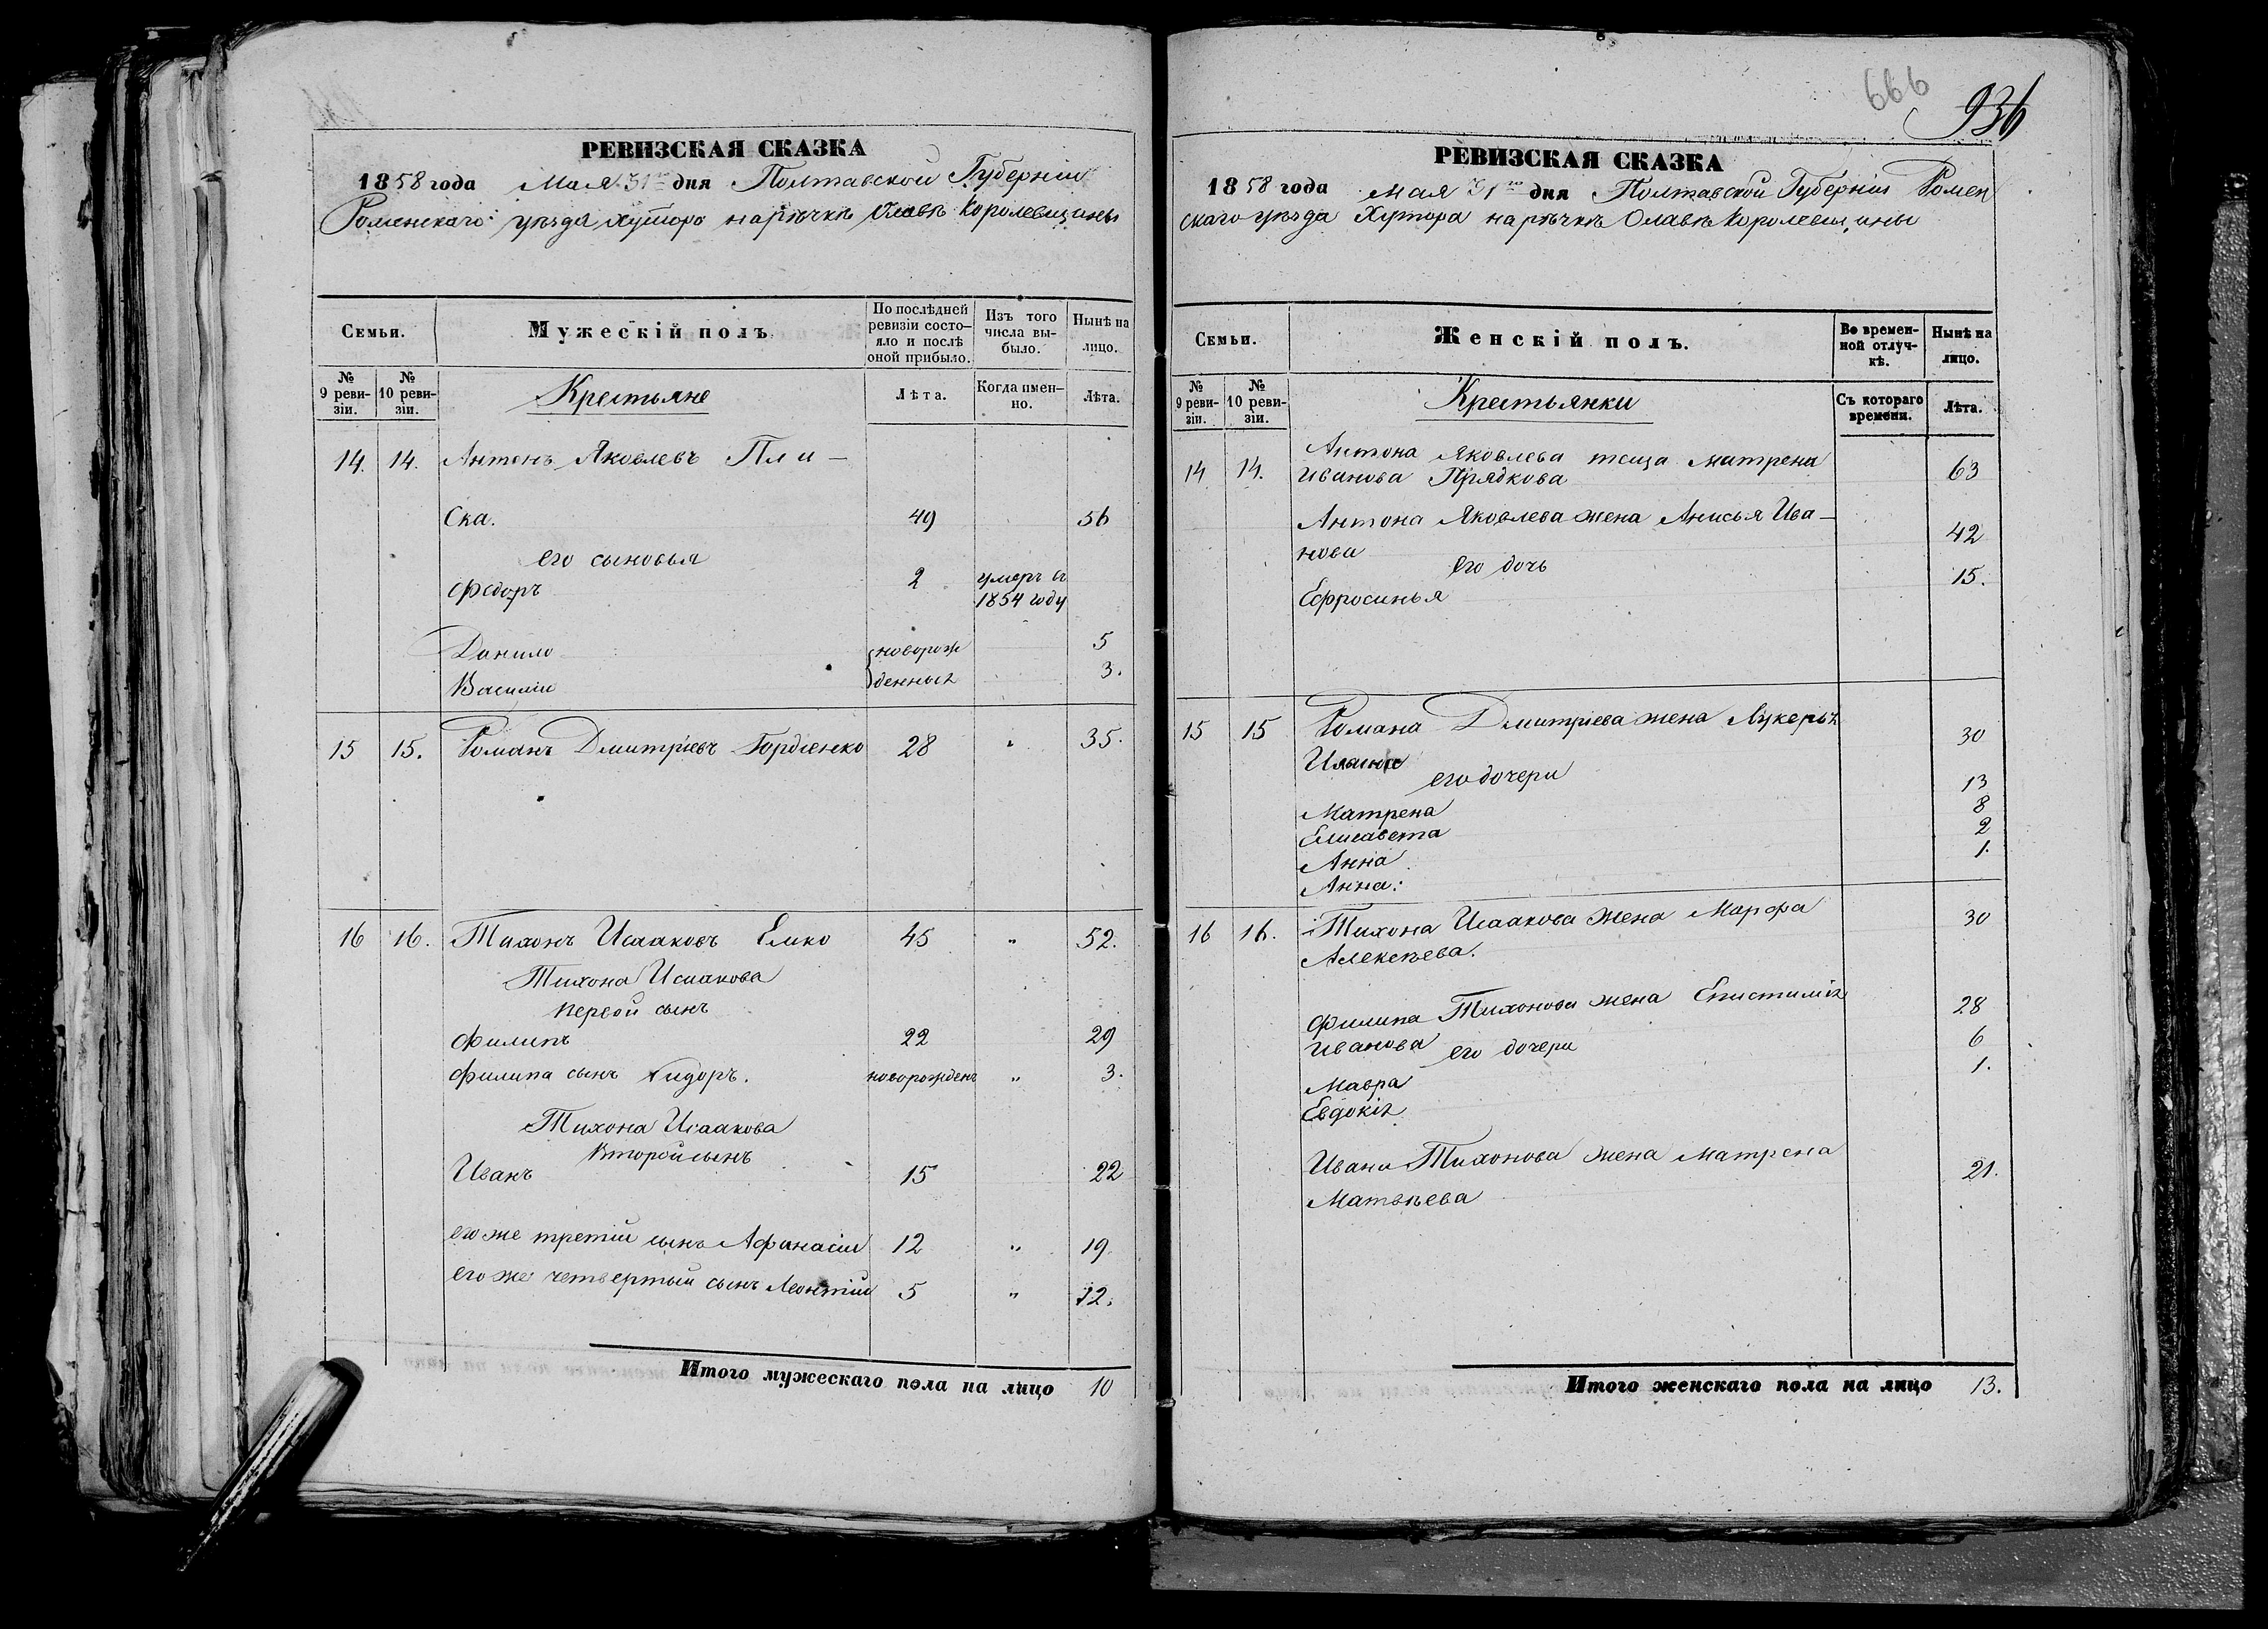 РЕВИЗСКАЯ СКАЗКА
1858 года Мая 31го дня Полтавской Губерніи
Роменскаго уѣзда хутора на рѣчкѣ Олавѣ Королевщины
Семьи.
Мужескій полъ.
По послѣдней ревизіи состо-яло и послѣ оной прибыло.
Изъ того числа вы-было.
Нынѣ на лицо.
№ 9 реви-зіи.
№ 10 реви-зіи.
Крестьяне
Лѣта.
Когда имен-но.
Лѣта.
14. 14. Антонъ Яковлевъ Пли-
ска. 49 56
его сыновья
Федоръ 2 умеръ въ 1854 году
Данило новорож 5
Василій денныя 3.
15 15. Романъ Дмитріевъ Гордіенко 28 " 35.
16 16. Тихонъ Исааковъ Елько 45 " 52.
Тихона Исаакова
первой сынъ
Филипъ 22 29
Филипа сынъ Сидоръ. новорожденъ " 3.
Тихона Исаакова
второй сынъ
Иванъ 15 22
его же третій сынъ Афанасій 12 " 19.
его же четвертый сынъ Леонтій 5 " 12.
Итого мужескаго пола на лицо 10
666
936
РЕВИЗСКАЯ СКАЗКА
1858 года мая 31го дня Полтавской Губерніи Ромен
скаго уѣзда Хутора на рѣчкѣ Олавѣ Королевщины
Семьи.
Женскій полъ.
Во времен-ной отлуч-кѣ.
Нынѣ на лицо.
№ 9 реви-зіи.
№ 10 реви-зіи.
Крестьянки
Съ котораго времени.
Лѣта.
14 14. Антона Яковлева теща Матрена
Иванова Прядкова 63
Антона Яковлева жена Анисья Ива-
нова 42
его дочь
Ефросинья 15.
15 15 Романа Дмитріева жена Лукерья
30
его дочери
Матрена 13
Елисавета 8
Анна 2
Анна: 1.
16 16. Тихона Исаакова жена Марфа 30
Алексѣева.
Филипа Тихонова жена Епистимія
Иванова 28
его дочери
Мавра 6
Евдокія 1.
Ивана Тихонова жена Матрена
Матвѣева 21.
Итого женскаго пола на лицо 13.